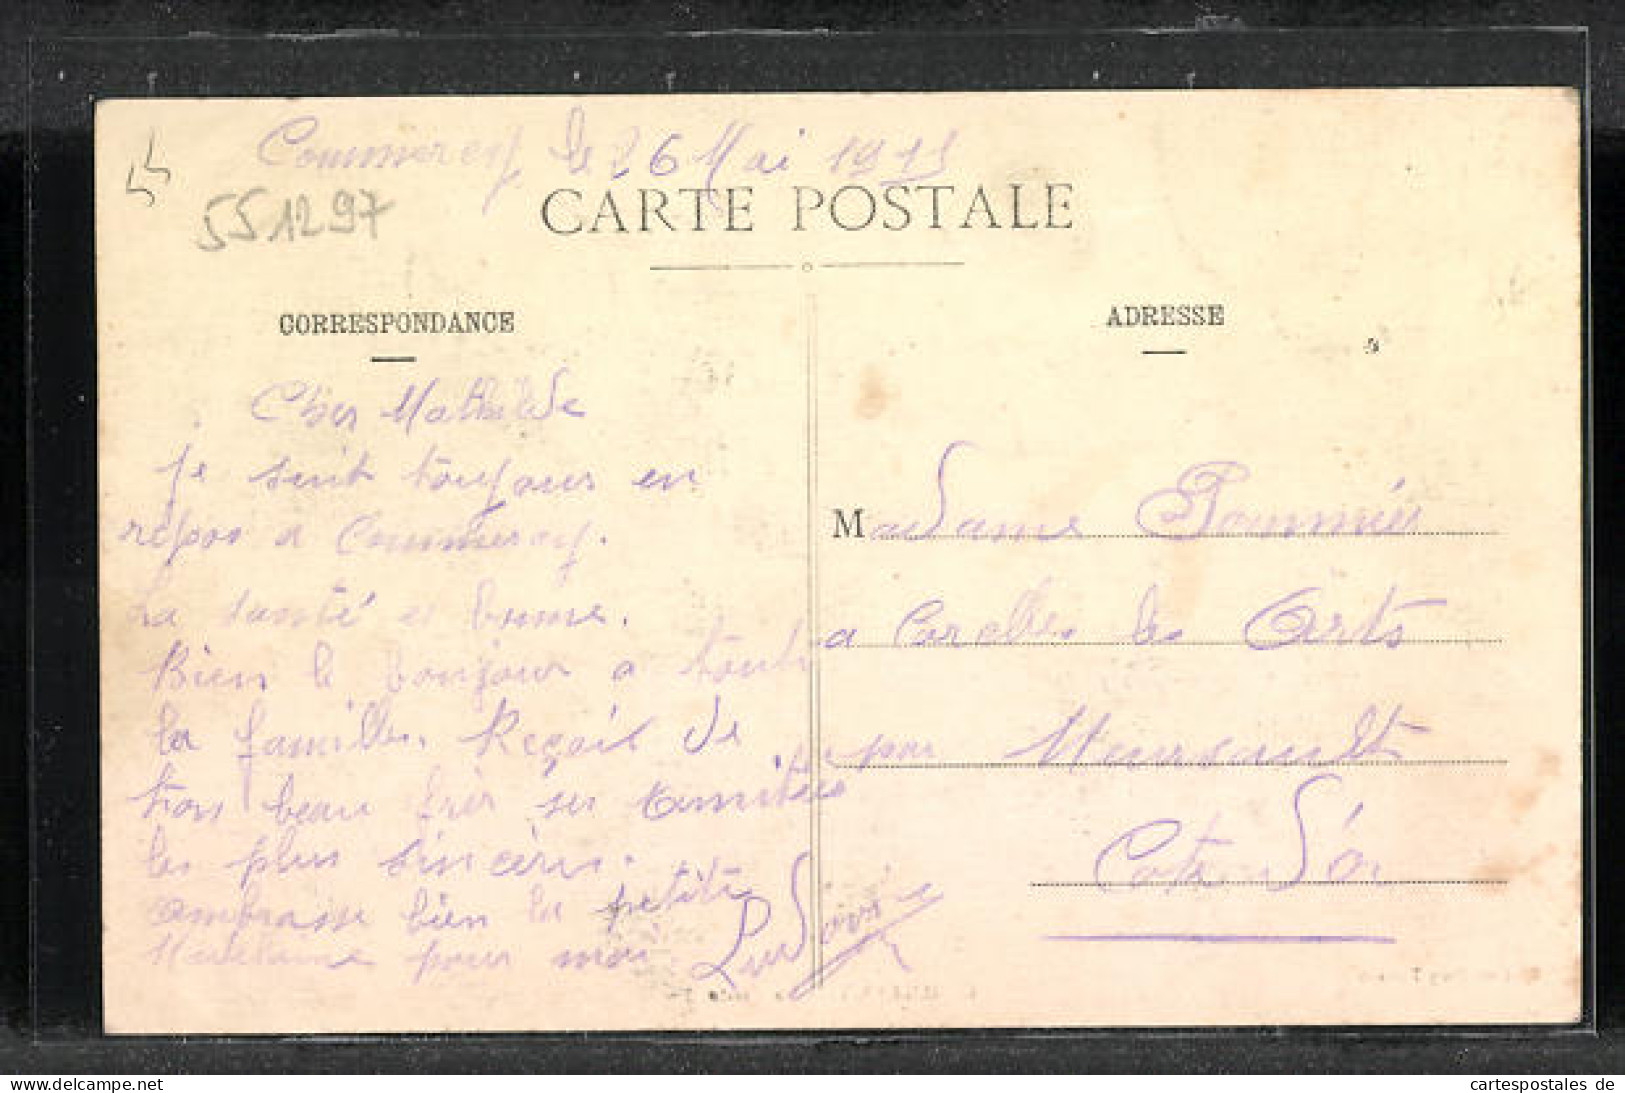 Commercy le 26 Mai 1915
55
551297
CARTE POSTALE
CORRESPONDANCE
ADRESSE
Cher Mathilde
je suit toujours en
repos a Commercy.
La santé é bonne.
Bien le bonjour a toute
la famille. Reçois de
ton beau frèr ses amitiées
les plus sincères.
embrasse bien la petite
Madelaine pour moi.
Ludovic
Madame Pommier
a Corcelles les Arts
par Meursault
Cote d'Or
Postcard-Tresor-FR
cartespostales de